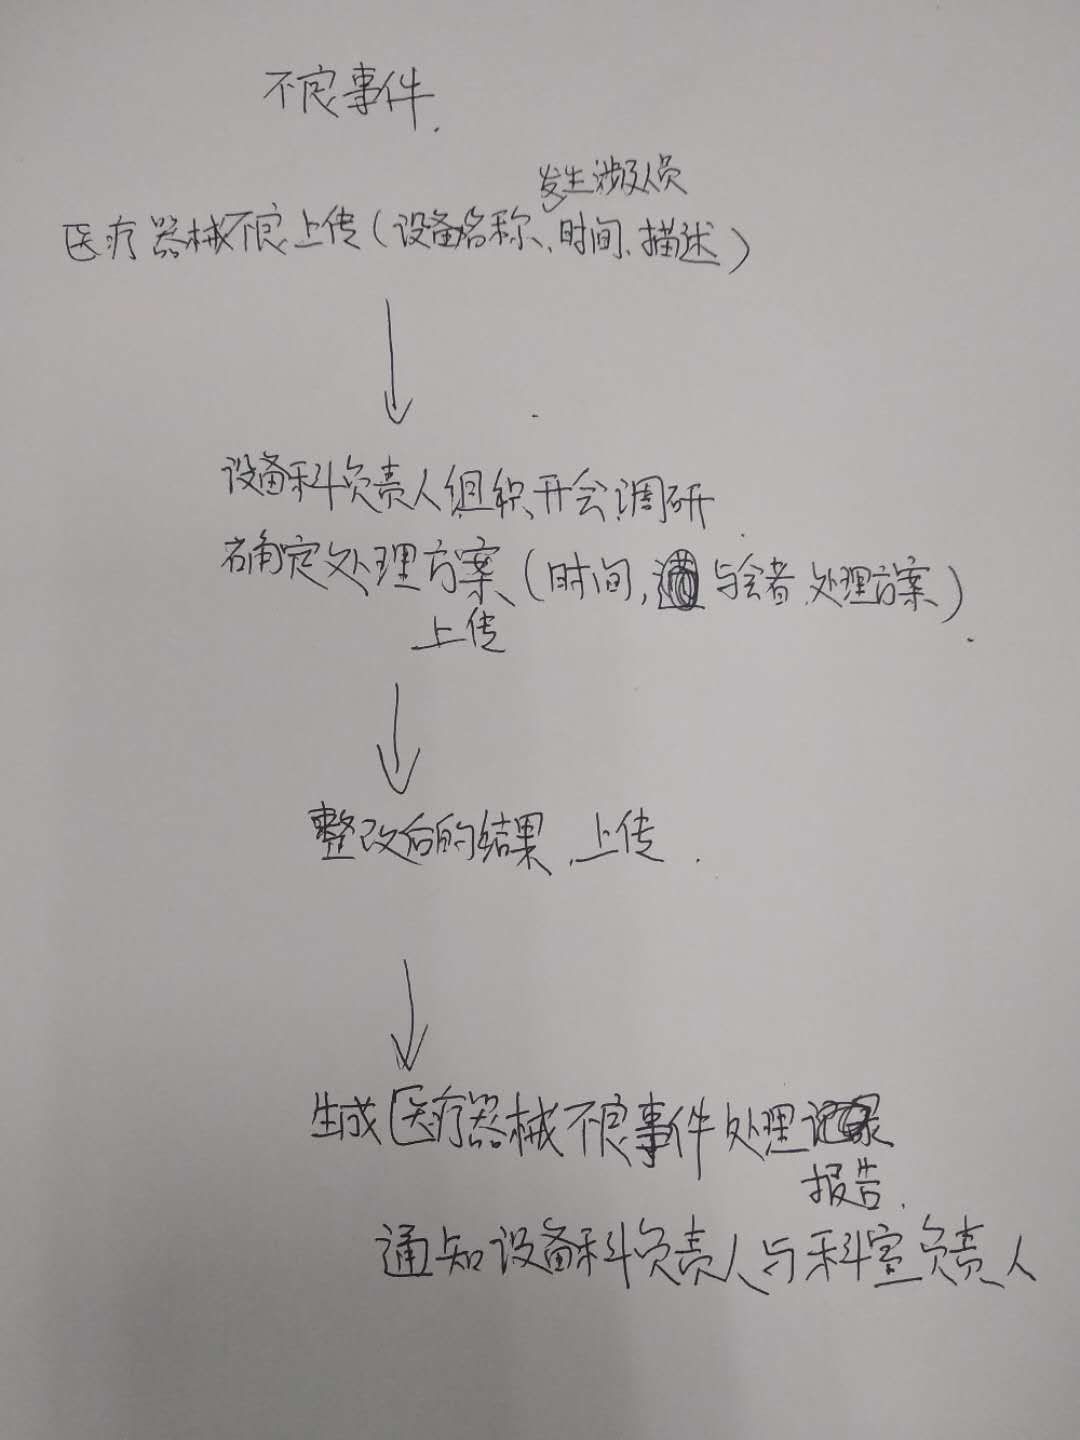 不良事件.
发生涉及人员
医疗器械不良上传(设备名称、时间、描述)
设备科负责人组织开会调研
确定处理方案(时间, 与会者、处理方案)
上传
整改后的结果,上传.
生成医疗器械不良事件处理
报告.
通知设备科负责人与科室负责人